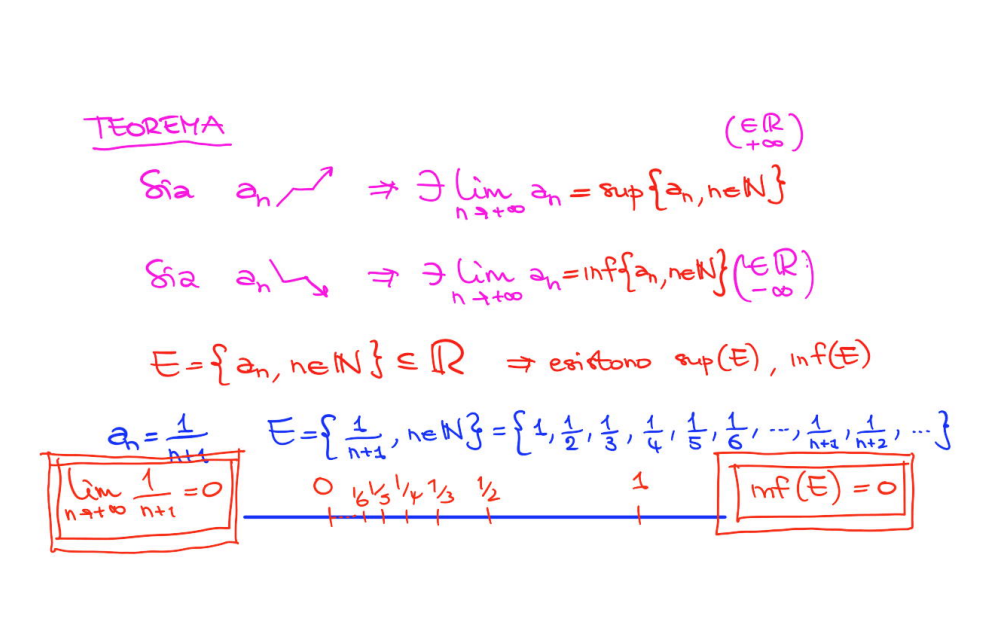 TEOREMA
(∈ℝ
+∞)
Sia aₙ ↗ ⇒ ∃ lim_{n→+∞} aₙ = sup{aₙ, n∈ℕ}
Sia aₙ ↘ ⇒ ∃ lim_{n→+∞} aₙ = inf{aₙ, n∈ℕ} (∈ℝ -∞)
E = {aₙ, n∈ℕ} ⊆ ℝ ⇒ esistono sup(E), inf(E)
aₙ = 1/(n+1) E = {1/(n+1), n∈ℕ} = {1, 1/2, 1/3, 1/4, 1/5, 1/6, ..., 1/(n+1), 1/(n+2), ...}
lim_{n→+∞} 1/(n+1) = 0
0 1/6 1/5 1/4 1/3 1/2 1
inf(E) = 0